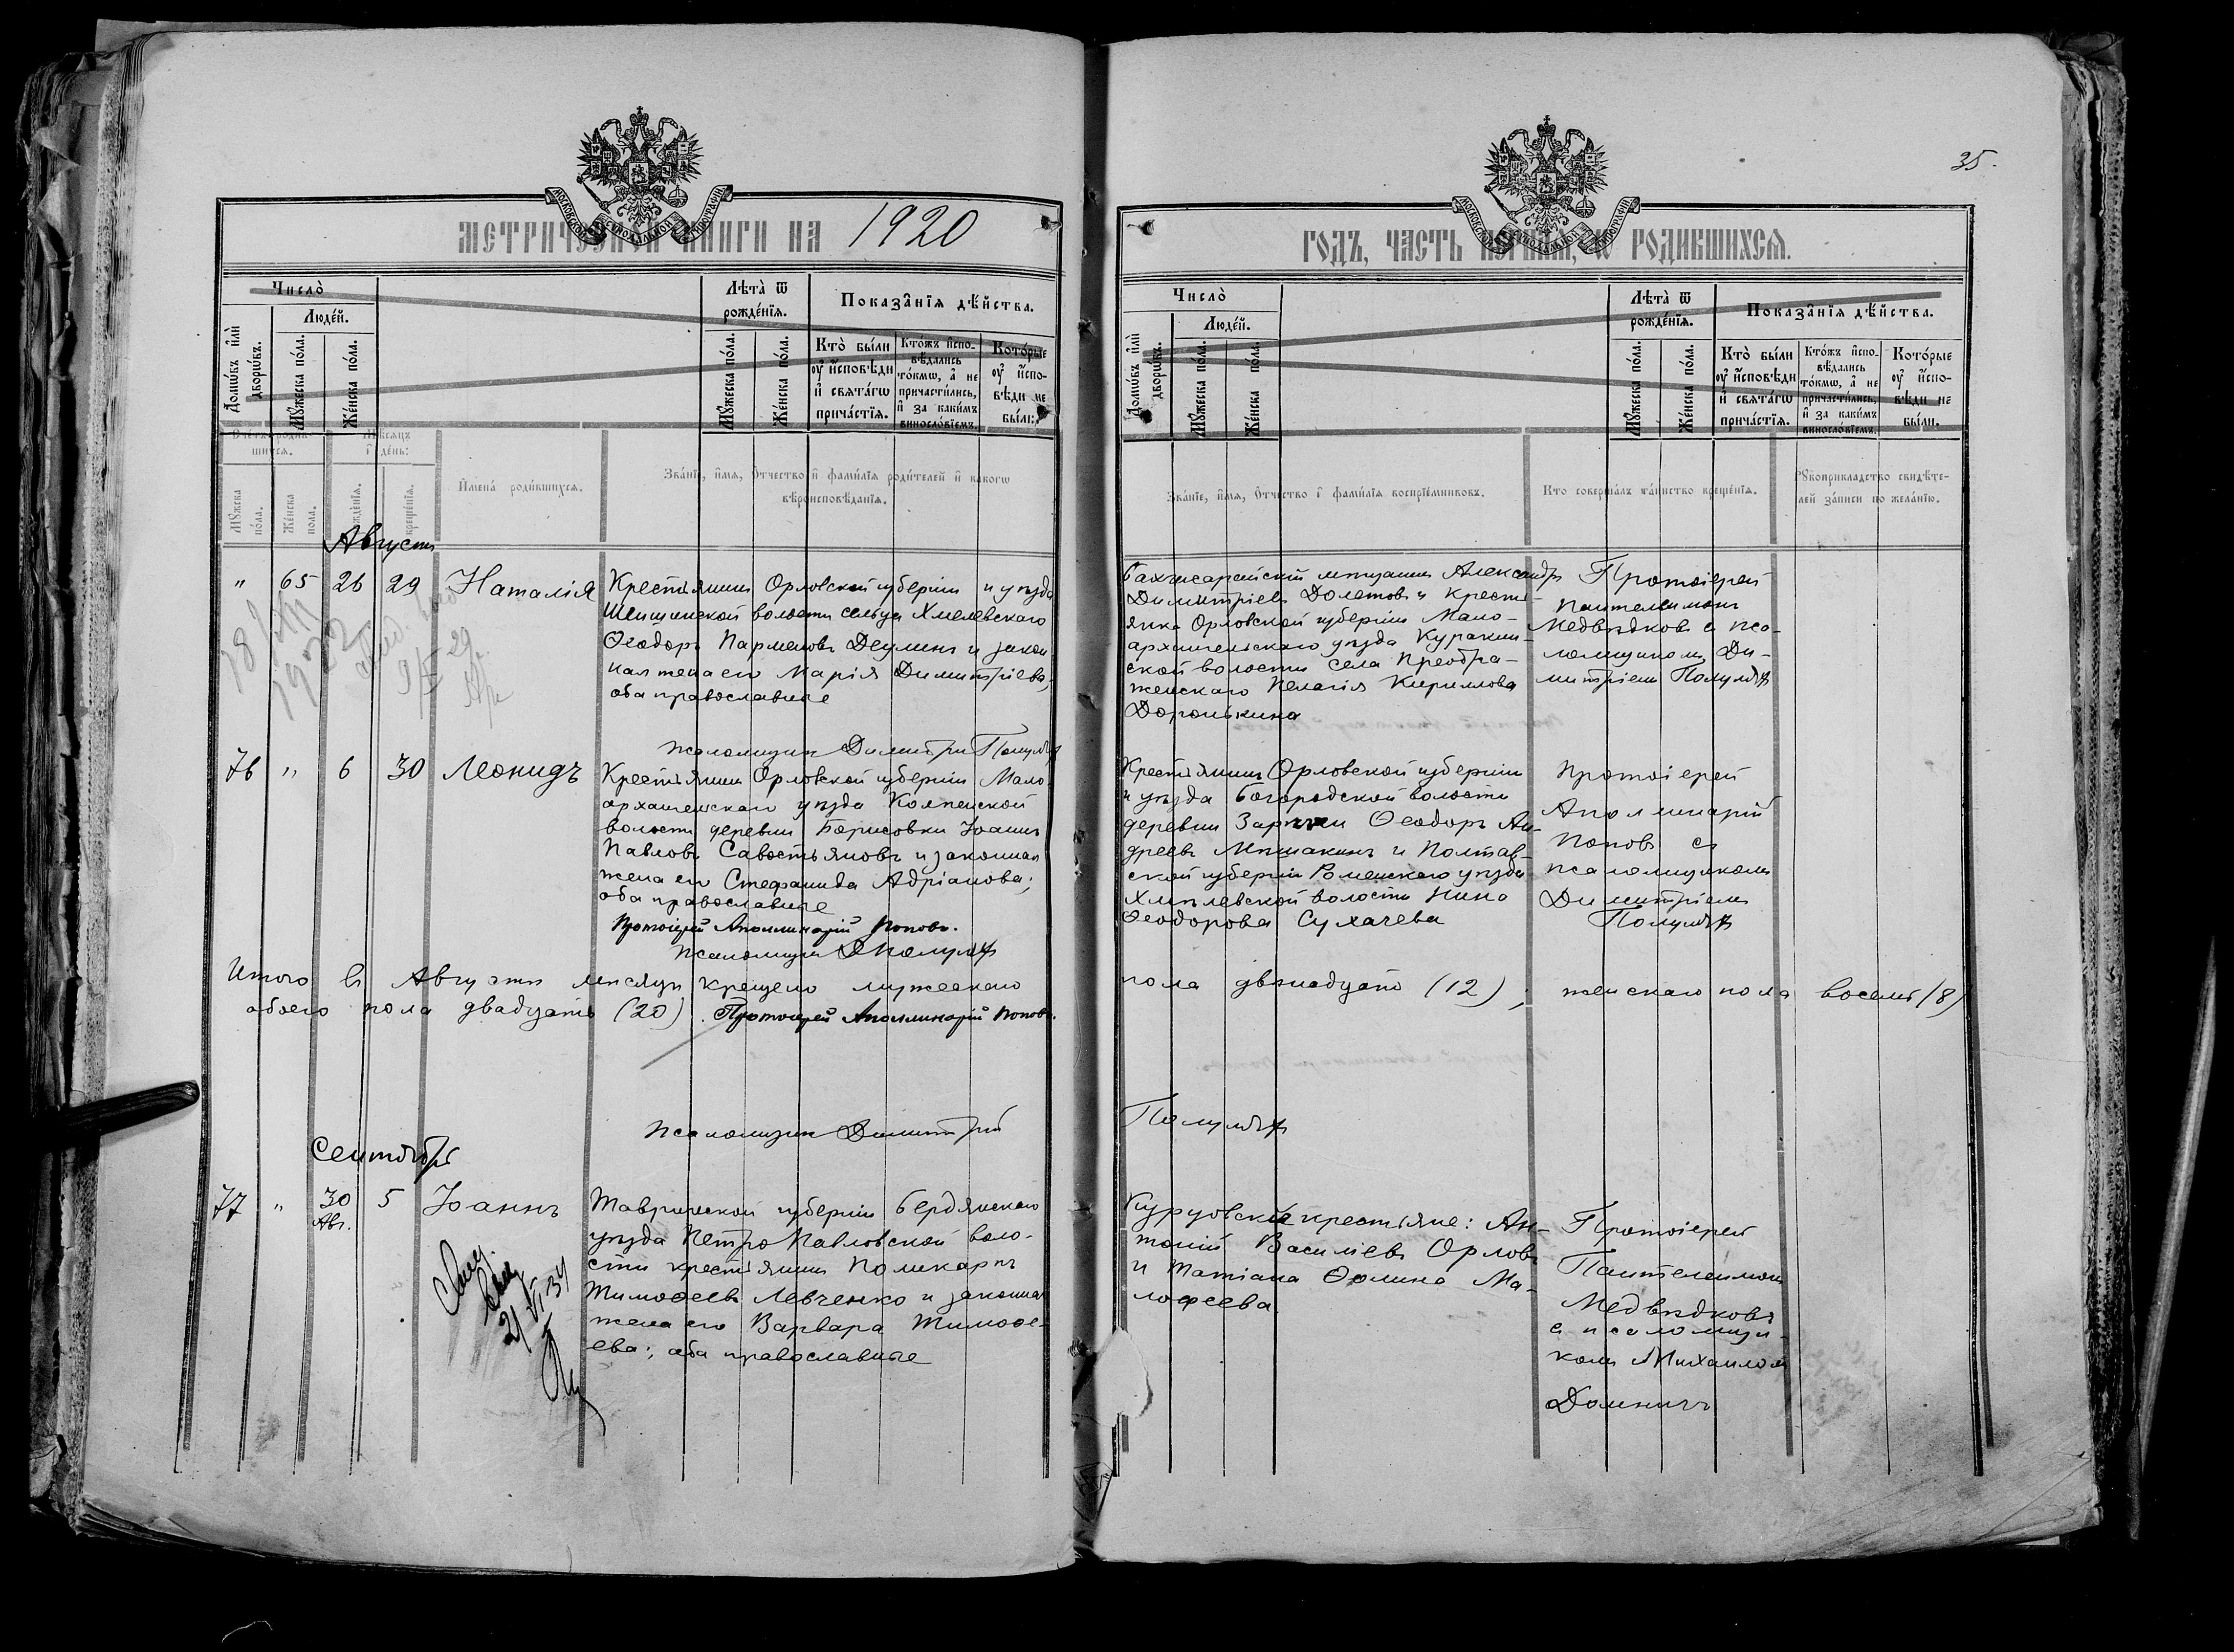 35.
МЕТРИЧЕСКОЙ КНИГИ НА 1920
ГОДЪ, ЧАСТЬ ПЕРВАЯ, Ѡ РОДИВШИХСЯ.
МОСКОВСКОЙ СѴНОДАЛЬНОЙ ТИПОГРАФІИ
Число̀
Люде́й.
Домѡ́въ и҆лѝ дворѡ́въ.
Мꙋ́жеска по́ла.
Же́нска по́ла.
Лѣта̀ ѿ рожде́нїѧ.
Мꙋ́жеска по́ла.
Же́нска по́ла.
Показа̑нїѧ дѣ́йства.
Кто̀ бы́ли ᲂу҆ и҆́сповѣди и҆ свѧта́гѡ прича́стїѧ.
Кто́жъ и҆спо-
вѣ́дались
то́кмѡ, а҆ не
причасти́лись,
и҆ за каки́мъ
виносло́вїемъ.
Кото́рые ᲂу҆ и҆́спо-
вѣди не
бы́ли.
Счетъ родив-
шихся.
Мѣ́сяцъ
и день:
Мꙋжска пола.
Женска пола.
рожденїя.
крещенїя.
Имена родившихся.
Званїе, имя, отчество и фамилїя родителей и какогѡ
вѣроисповѣданїя.
Званїе, имя, отчество и фамилїя воспрїемниковъ.
Кто совершалъ таинство крещенїя.
Рꙋкоприкладство свидѣте-
лей записи по желанїю.
Августъ
" 65 26 29 Наталія
Крестьянинъ Орловской губерніи и уѣзда
волости сельца Хмелевскаго
Ѳеодоръ Парменовъ Деулинъ и закон
ная жена его Марія Димитріева,
оба православные
Псаломщикъ Димитри
Бахчисарайскій мѣщанинъ Александръ
Димитріевъ Долетовъ и крестья-
янка Орловской губерніи Мало-
архангельскаго уѣзда Куракин-
ской волости села Преобра-
женскаго Пелагія Кириллова
Доронькина
Протоіерей
Пантелеимонъ
Медвѣдковъ съ пса-
ломщикомъ Ди-
митріемъ
1922
76 " 6 30 Леонидъ
Крестьянинъ Орловской губерніи Мало
архангельскаго уѣзда Колпенской
волости деревни Борисовки Іоаннъ
Павловъ Савостьяновъ и законная
жена его Стефанида Адріанова;
оба православные
Протоіерей Аполлинарій Поповъ.
Псаломщикъ
Крестьянинъ Орловской губерніи
и уѣзда Богородской волости
деревни Ѳеодоръ Ан-
дреевъ Мишакинъ и Полтав-
ской губерніи Роменскаго уѣзда
Хмѣлевской волости Нина
Ѳеодорова Сухачева
Протоіерей
Аполлинарій
Поповъ съ
псаломщикомъ
Димитріемъ
Итого въ Августѣ мѣсяцѣ крещено мужескаго пола двѣнадцать (12); женскаго пола восемь (8)
обоего пола двадцать (20). Протоіерей Аполлинарій Поповъ.
Псаломщикъ Димитрій
Сентябрь
77 " 30 Авг. 5 Іоаннъ
Таврической губерніи Бердянскаго
уѣзда Петро Павловской воло-
сти крестьянинъ Поликарпъ
Тимоѳеевъ Левченко и законная
жена его Варвара Тимоѳе-
ева; оба православные
21/VI 34
Курцовскіе крестьяне: Ан-
тоній Василіевъ Орловъ
и Татіана Ѳомина Ма-
лофеева
Протоіерей
Пантелеимонъ
Медвѣдковъ
съ псаломщи-
комъ Михаиломъ
Домничъ